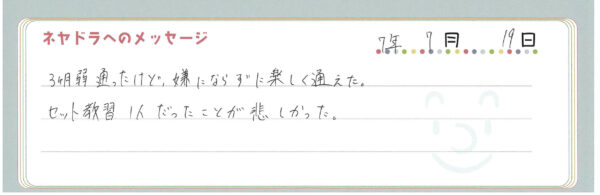 ネヤドラへのメッセージ
7年 9月 19日
3ヶ月弱通ったけど、嫌にならずに楽しく通えた。
セット教習 1人だったことが悲しかった。